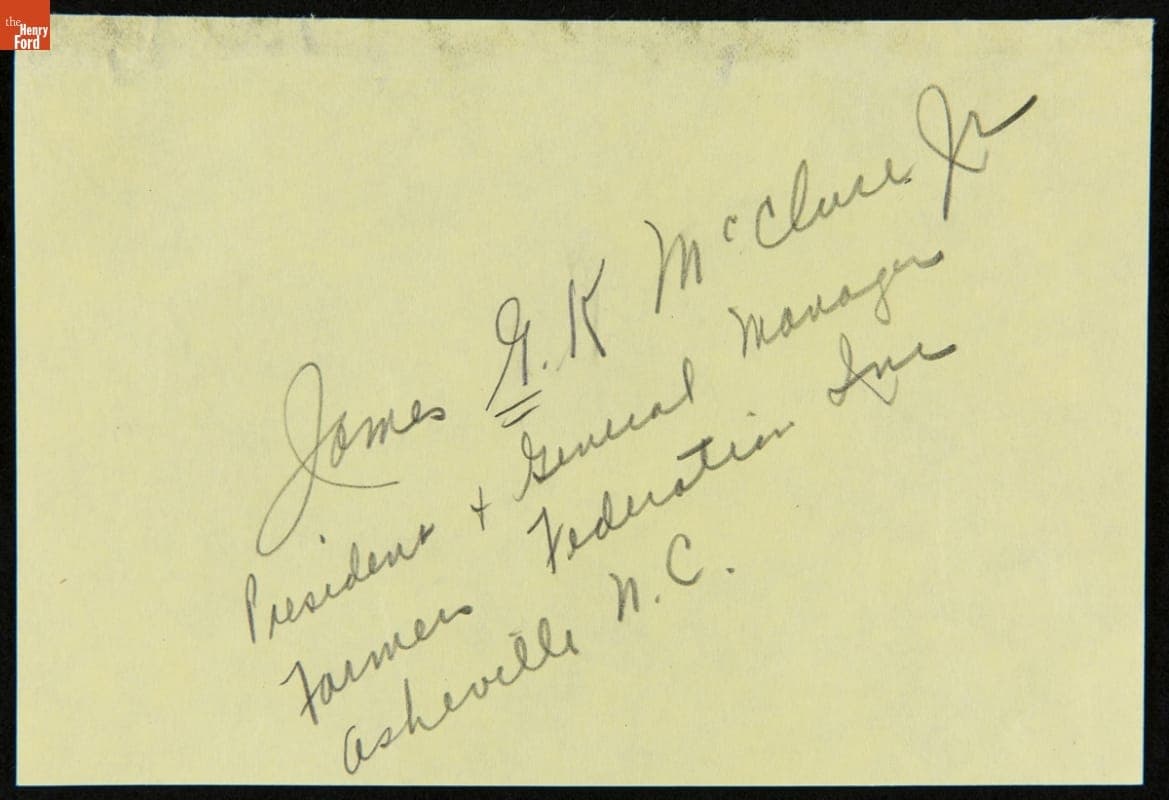 the
Henry
Ford
James G. K McClure Jr
President + General Manager
Farmers Federation Inc
Asheville N.C.